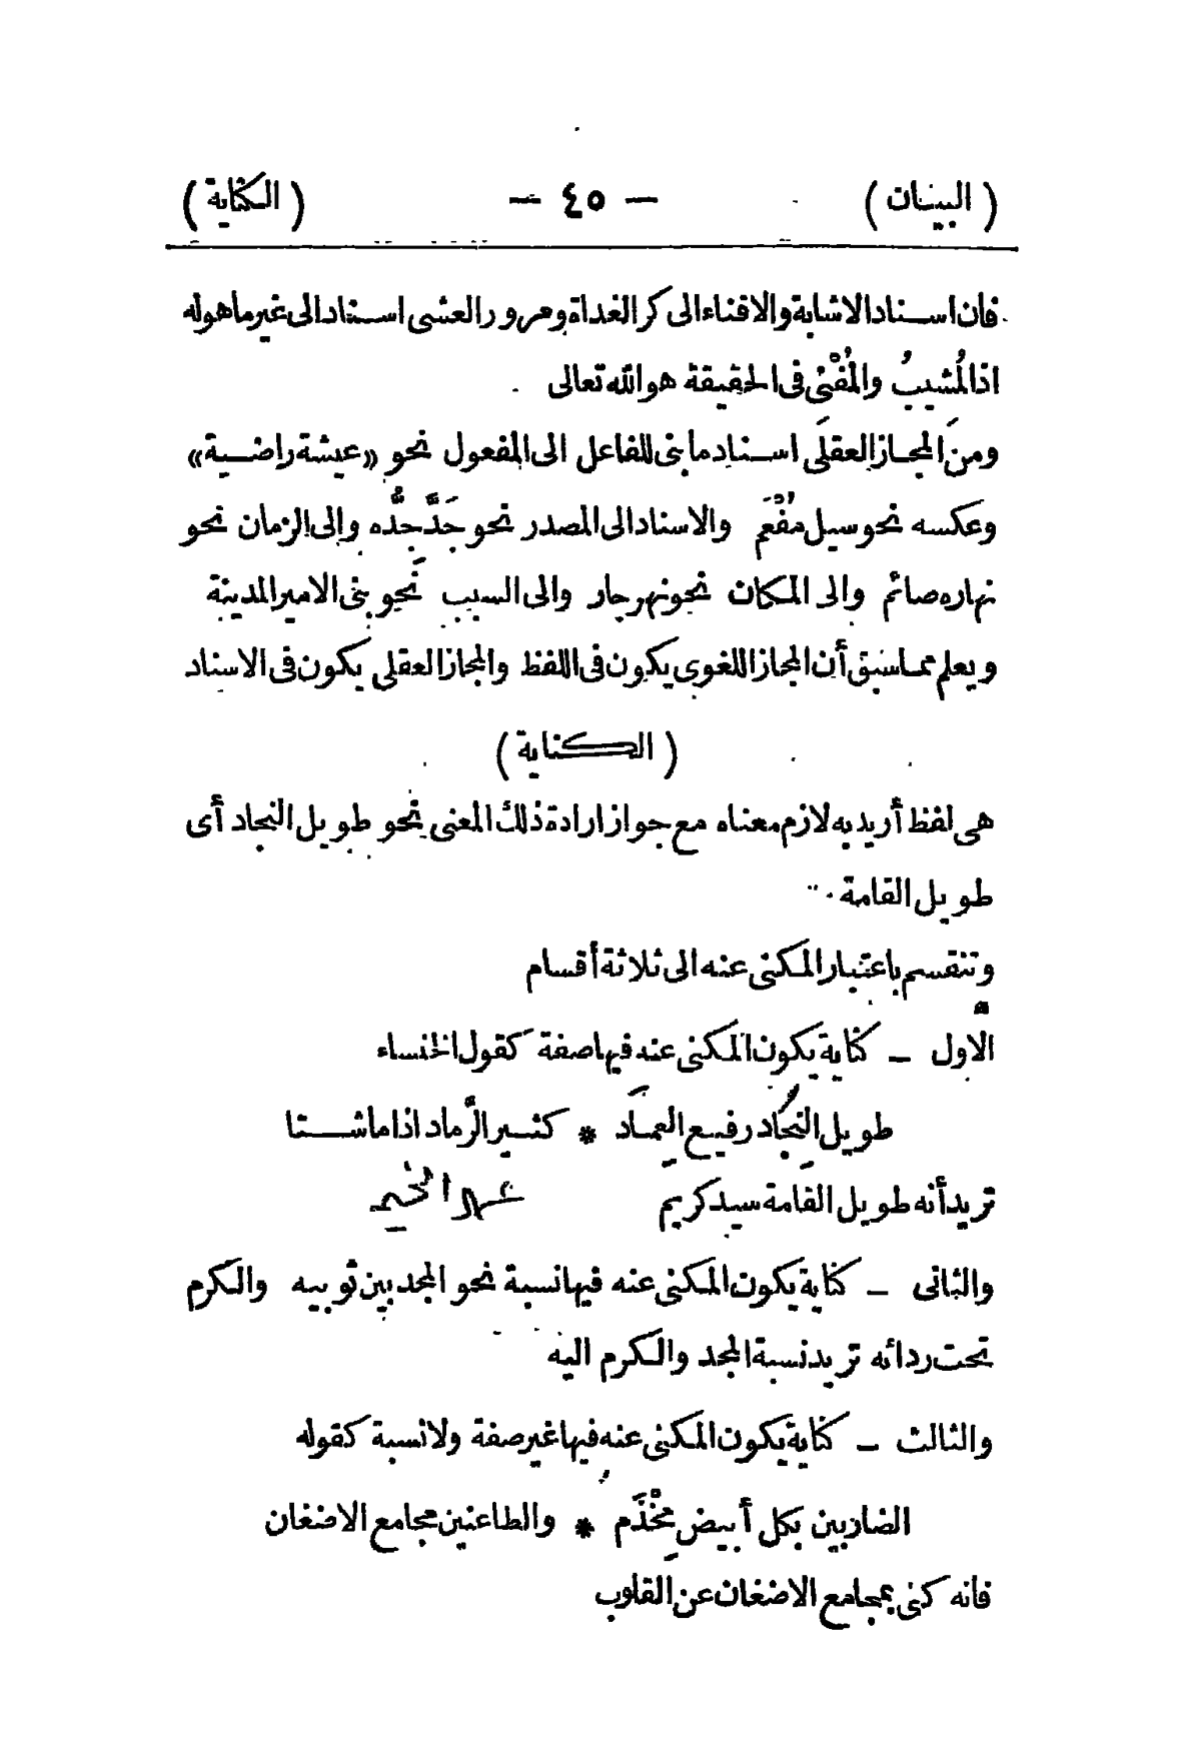 (البينان) — ٤٥ — (الكناية)
فان اسناد الاشابة والافناء الى كر الغداة ومرور العشى اسناد الى غير ما هو له
اذ المُشيبُ والمُفْنُى فى الحقيقة هو الله تعالى .
ومن المجاز العقلى اسناد ما بنى للفاعل الى المفعول نحو «عيشة راضية»
وعكسه نحو سيل مُفْعَم والاسناد الى المصدر نحو جَدَّ جِدُّه والى الزمان نحو
نهاره صائم والى المكان نحو نهر جار والى السبب نحو بنى الامير المدينة
ويعلم مما سبق أن المجاز اللغوى يكون فى اللفظ والمجاز العقلى يكون فى الاسناد
(الكناية)
هى لفظ أريد به لازم معناه مع جواز ارادة ذلك المعنى نحو طويل النجاد أى
طويل القامة .
وتنقسم باعتبار المكنى عنه الى ثلاثة أقسام
الاول — كناية يكون المكنى عنه فيها صفة كقول الخنساء
طويل النِّجَاد رفيع العِمَاد * كثير الرَّماد اذا ما شتا
تريد أنه طويل القامة سيد كريم
والثانى — كناية يكون المكنى عنه فيها نسبة نحو المجد بين ثوبيه والكرم
تحت ردائه تريد نسبة المجد والكرم اليه
والثالث — كناية يكون المكنى عنه فيها غير صفة ولا نسبة كقوله
الضاربين بكل أبيض مِخْذَم * والطاعنين مجامع الاضغان
فانه كنى بمجامع الاضغان عن القلوب